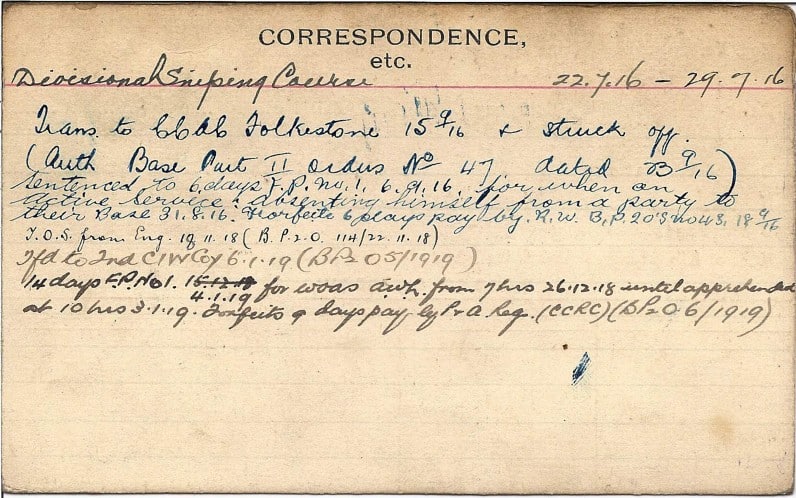 CORRESPONDENCE,
etc.
Divisional Sniping Course 22.7.16 – 29.7.16
Trans. to CCAC Folkestone 15 9/16 & struck off.
(Auth Base Part II orders No 47 dated 9/16)
Sentenced to 6 days F.P. No. 1. 6.9.16. for when on
Active Service: absenting himself from a party to
their Base 31.8.16. Forfeits 6 days pay by R.W. 18 9/16
T.O.S. from Eng. 18.11.18 (B.P.2.O. 114/22.11.18)
Tfd to 2nd CIWCoy 6.1.19 (BP2 O5/1919)
14 days F.P. No 1. 15.12.18
4.1.19 for WOAS awl. from 7 hrs 26.12.18 until apprehended
at 10 hrs 3.1.19. Forfeits 9 days pay by Reg. (CCRC) (BP2 O 6/1919)